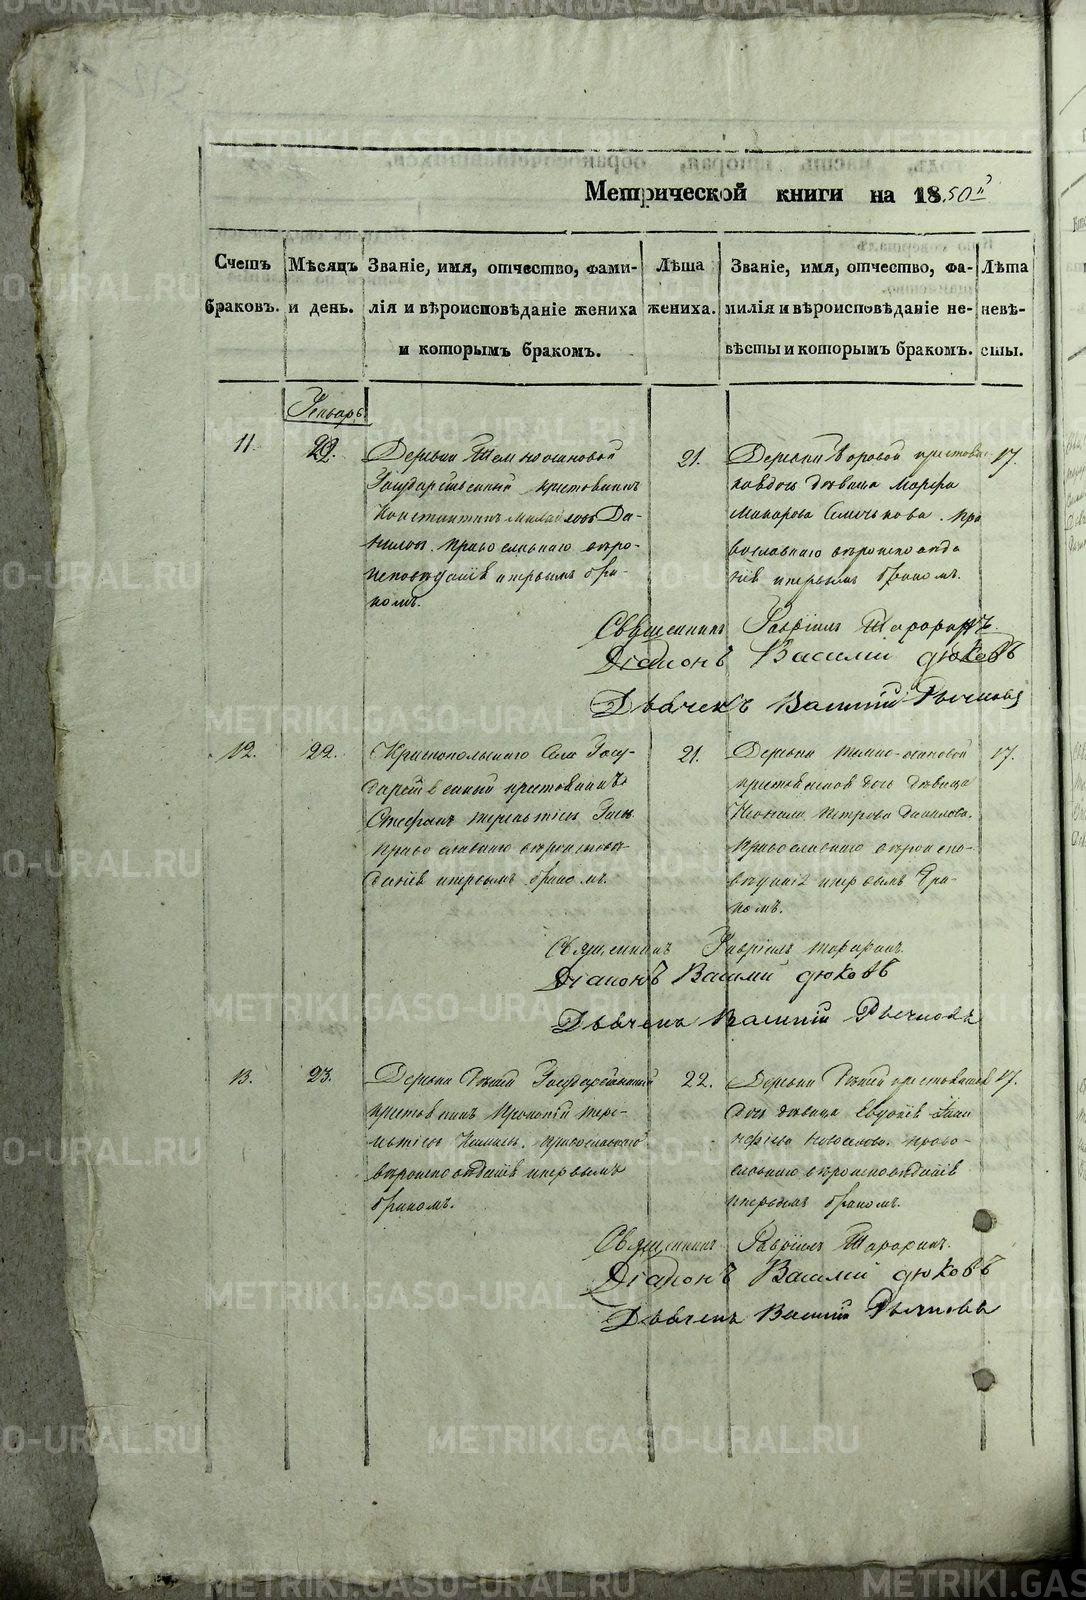 Метрической книги на 1850й
Счетъ браковъ.
Мѣсяцъ и день.
Званіе, имя, отчество, фамилія и вѣроисповѣданіе жениха и которымъ бракомъ.
Лѣта жениха.
Званіе, имя, отчество, фамилія и вѣроисповѣданіе невѣсты и которымъ бракомъ.
Лѣта невѣсты.
Генварь
11.
22.
Деревни Темноосиновой
Государственный крестьянинъ
Константинъ Михайловъ Да-
ниловъ. православнаго вѣро-
исповѣданія и первымъ бра-
комъ.
21.
Деревни Боровой крестьян-
ская дочь дѣвица Марфа
Макарова. Пра
вославнаго вѣроисповѣда
нія и первымъ бракомъ.
17.
Священникъ Гавріилъ Тороринъ.
Діаконъ Василій Дюковъ
Дьячекъ Василій Рычковъ
12.
22.
Краснопольскаго Села Госу-
дарственный крестьянинъ
Стефанъ Терентіевъ
православнаго вѣроисповѣ-
данія и первымъ бракомъ.
21.
Деревни темно-осиновой
крестьянская дочь дѣвица
Неонила Петрова Данилова.
Православнаго вѣроиспо-
вѣданія и первымъ бра-
комъ.
17.
Священникъ Гавріилъ Тороринъ.
Діаконъ Василій Дюковъ
Дьячекъ Василій Рычковъ
13.
23.
Деревни Государственный
крестьянинъ Прокопій Тере-
нтіевъ православнаго
вѣроисповѣданія и первымъ
бракомъ.
22.
Деревни крестьянская
дочь дѣвица Евдокія
Новоселова. Право-
славнаго вѣроисповѣданія
и первымъ бракомъ.
17.
Священникъ Гавріилъ Тороринъ.
Діаконъ Василій Дюковъ
Дьячекъ Василій Рычковъ
METRIKI.GASO-URAL.RU